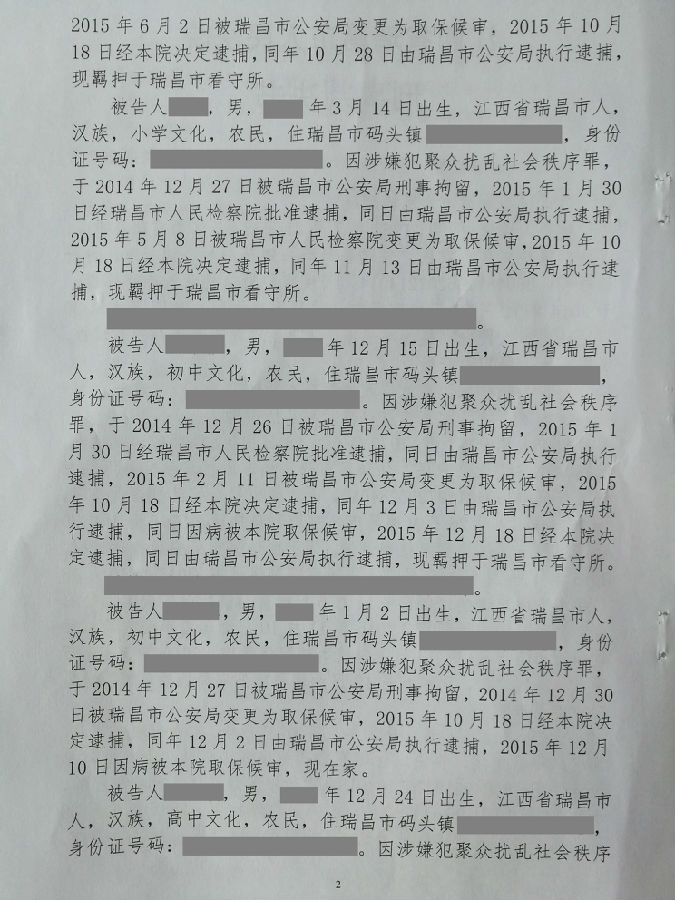 2015年6月2日被瑞昌市公安局变更为取保候审，2015年10月
18日经本院决定逮捕，同年10月28日由瑞昌市公安局执行逮捕，
现羁押于瑞昌市看守所。
被告人，男，年3月14日出生，江西省瑞昌市人，
汉族，小学文化，农民，住瑞昌市码头镇，身份
证号码：。因涉嫌犯聚众扰乱社会秩序罪，
于2014年12月27日被瑞昌市公安局刑事拘留，2015年1月30
日经瑞昌市人民检察院批准逮捕，同日由瑞昌市公安局执行逮捕，
2015年5月8日被瑞昌市人民检察院变更为取保候审，2015年10
月18日经本院决定逮捕，同年11月13日由瑞昌市公安局执行逮
捕，现羁押于瑞昌市看守所。
。
被告人，男，年12月15日出生，江西省瑞昌市
人，汉族，初中文化，农民，住瑞昌市码头镇，
身份证号码：。因涉嫌犯聚众扰乱社会秩序
罪，于2014年12月26日被瑞昌市公安局刑事拘留，2015年1
月30日经瑞昌市人民检察院批准逮捕，同日由瑞昌市公安局执行
逮捕，2015年2月11日被瑞昌市公安局变更为取保候审，2015
年10月18日经本院决定逮捕，同年12月3日由瑞昌市公安局执
行逮捕，同日因病被本院取保候审，2015年12月18日经本院决
定逮捕，同日由瑞昌市公安局执行逮捕，现羁押于瑞昌市看守所。
。
被告人，男，年1月2日出生，江西省瑞昌市人，
汉族，初中文化，农民，住瑞昌市码头镇，身份
证号码：。因涉嫌犯聚众扰乱社会秩序罪，
于2014年12月27日被瑞昌市公安局刑事拘留，2014年12月30
日被瑞昌市公安局变更为取保候审，2015年10月18日经本院决
定逮捕，同年12月2日由瑞昌市公安局执行逮捕，2015年12月
10日因病被本院取保候审，现在家。
被告人，男，年12月24日出生，江西省瑞昌市
人，汉族，高中文化，农民，住瑞昌市码头镇，
身份证号码：。因涉嫌犯聚众扰乱社会秩序
2